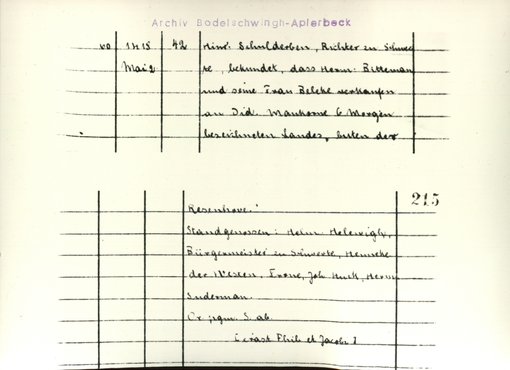 Archiv Bodelschwingh-Aplerbeck
1415 42 Hinr. Schulderben, Richter zu Schwer-
Mai 2 te, bekundet, dass Herm: Bitteman
und seine Frau Beleke verkaufen
an Did. 6 Morgen
bezeichneten Landes,
215
Rosenhove."
Standgenossen: Helm. Helewigh,
Bürgermeister zu Schwerte, Henneke
der Westen, Joh Huck, Herm
Suderman.
Or. pgm. S. ab.
Phili et Jacobi